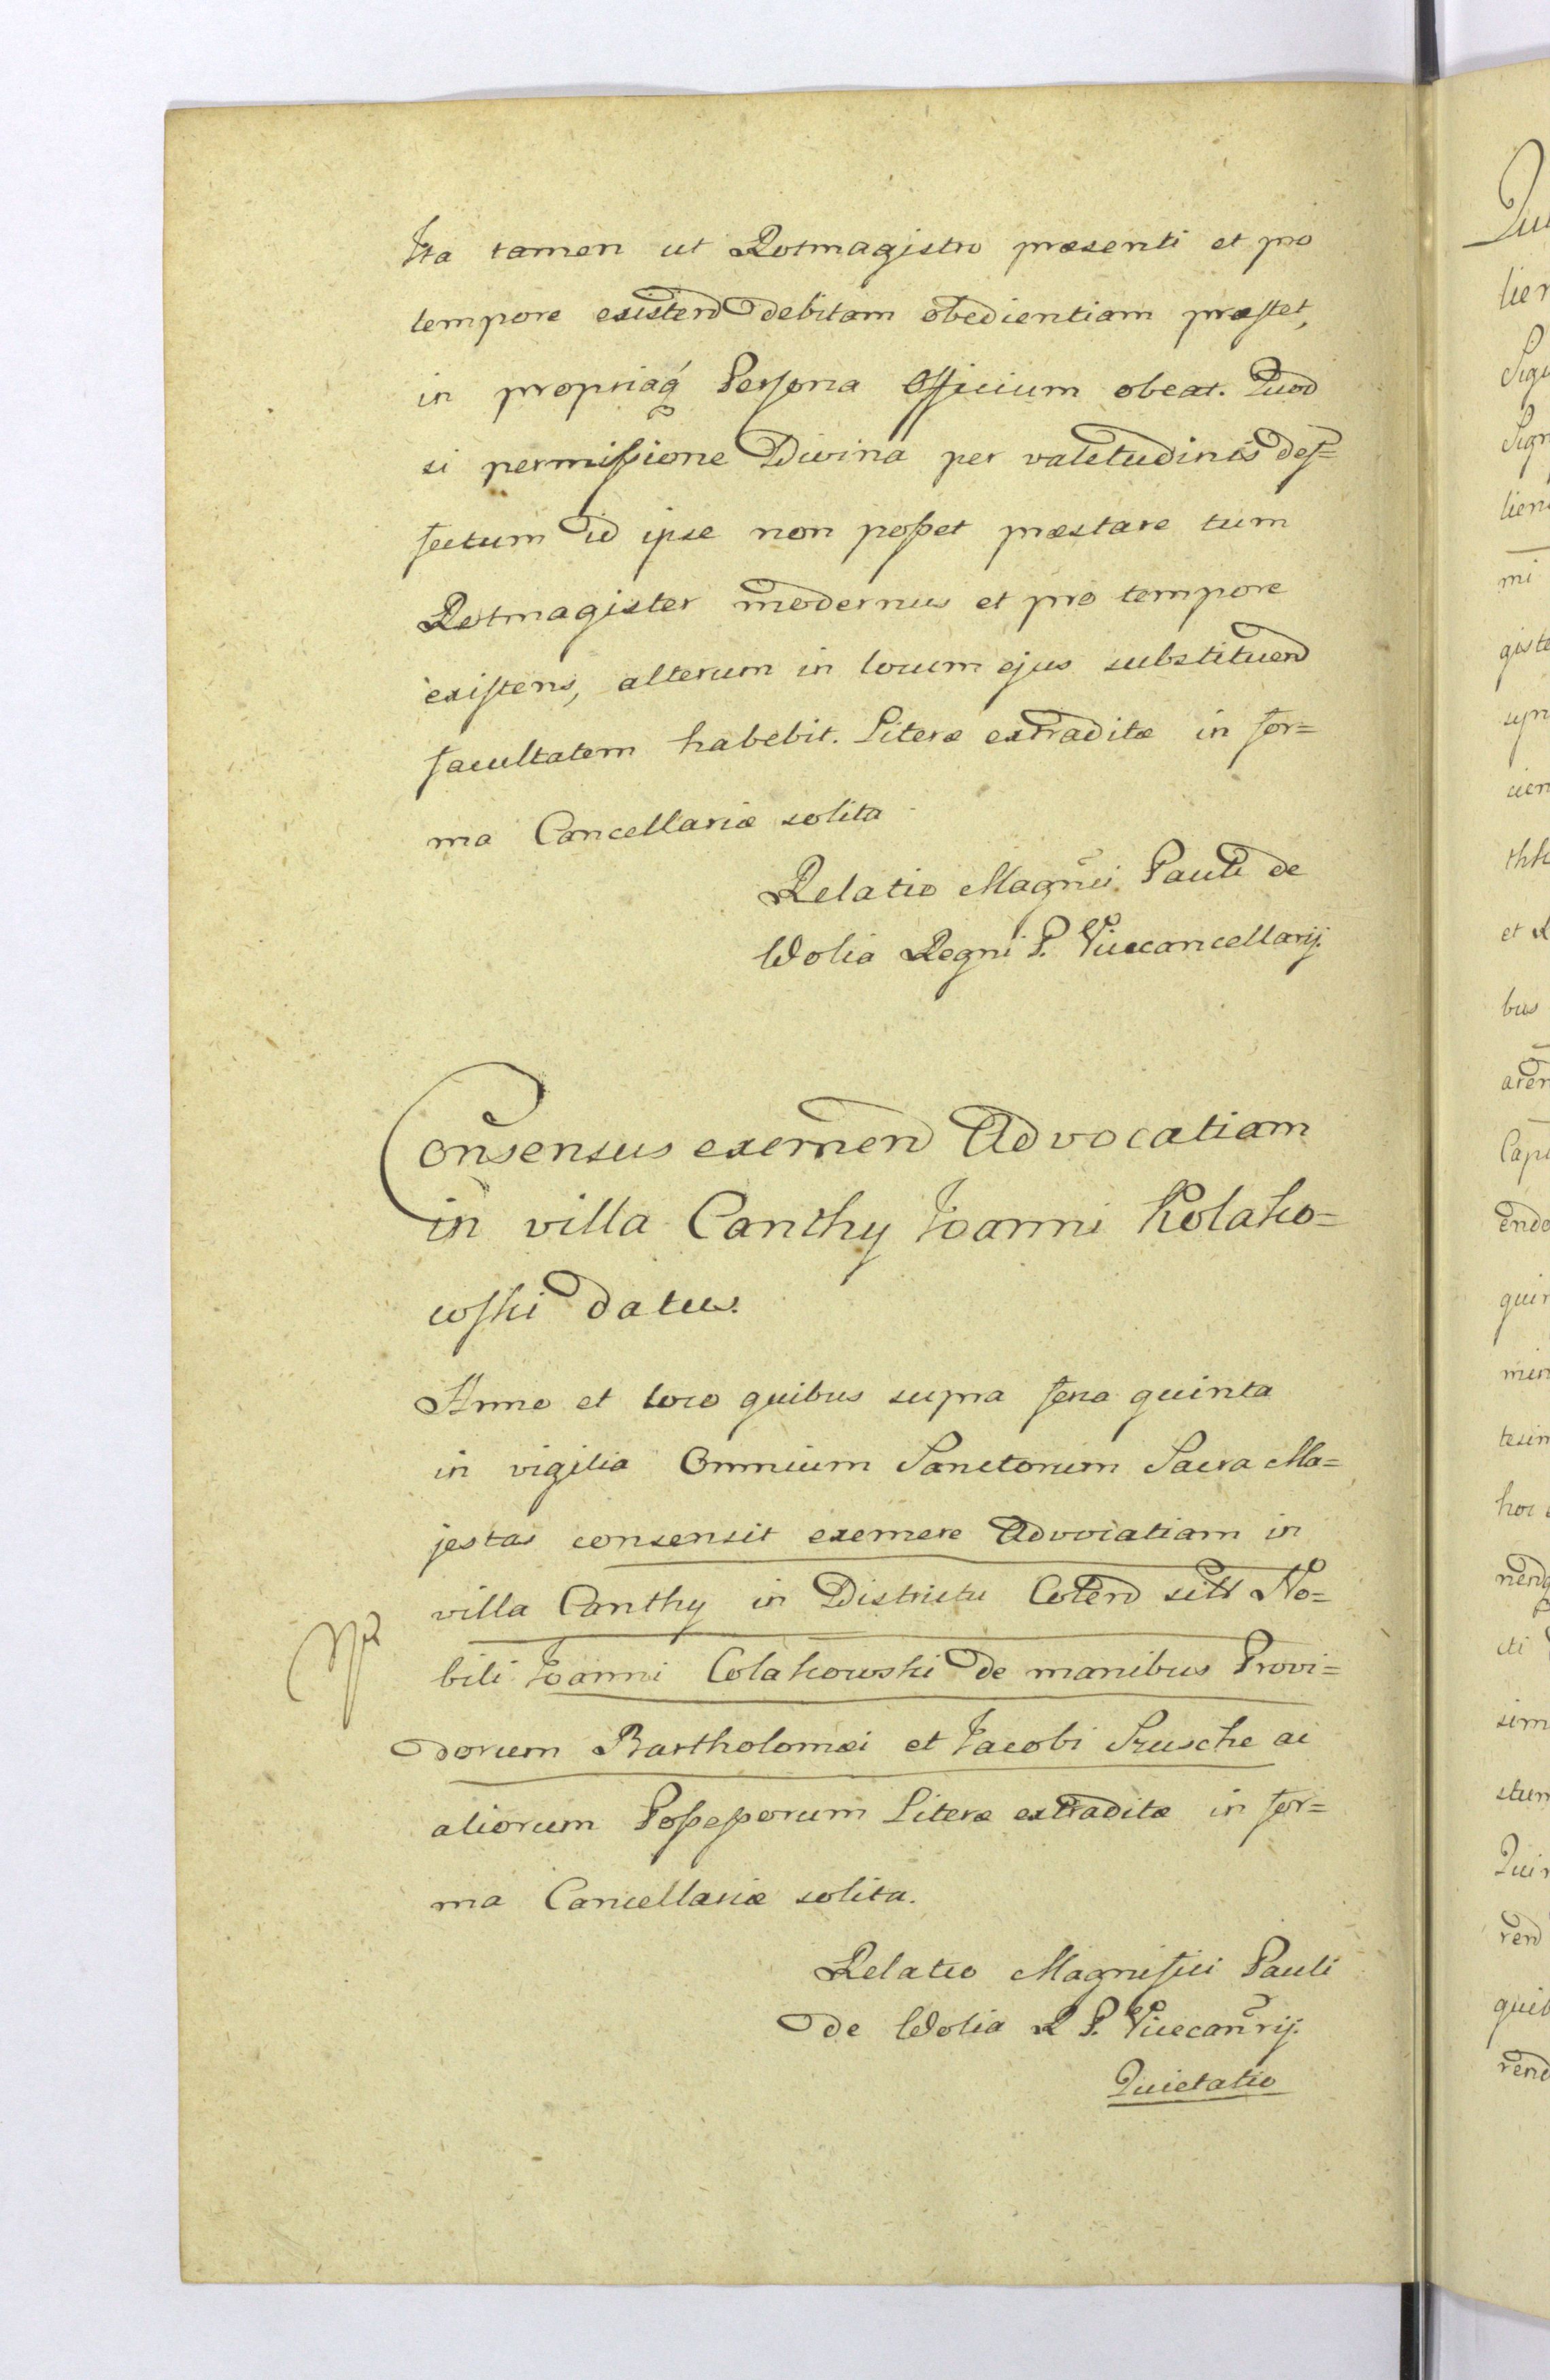 Ita tamen ut Rotmagistro præsenti et pro
tempore existend debitam obedientiam præstet,
in propriaq́ Persona Officium obeat. Quod
si permissione Divina per valetudinis def=
fectum id ipse non posset præstare tum
Rotmagister modernus et pro tempore
existens, alterum in locum ejus substituend
facultatem habebit. Literæ extraditæ in for=
ma Cancellariæ solita
Relatio Magnci Pauli de
Wolia Regni P. Vicecancellarij.
Consensus exemen Advocatiam
in villa Canthy Joanni Kolako=
wski datus.
Anno et loco quibus supra feria quinta
in vigilia Omnium Sanctorum Sacra Ma=
jestas consensit exemere Advocatiam in
villa Canthy in Districtu Colend sitt No=
bili Joanni Colakowski de manibus Provi=
dorum Bartholomæi et Jacobi Szusche ac
aliorum Possessorum Literæ extraditæ in for=
ma Cancellariæ solita.
Relatio Magnifici Pauli
de Wolia R P. Vicecanrij.
Quietatio